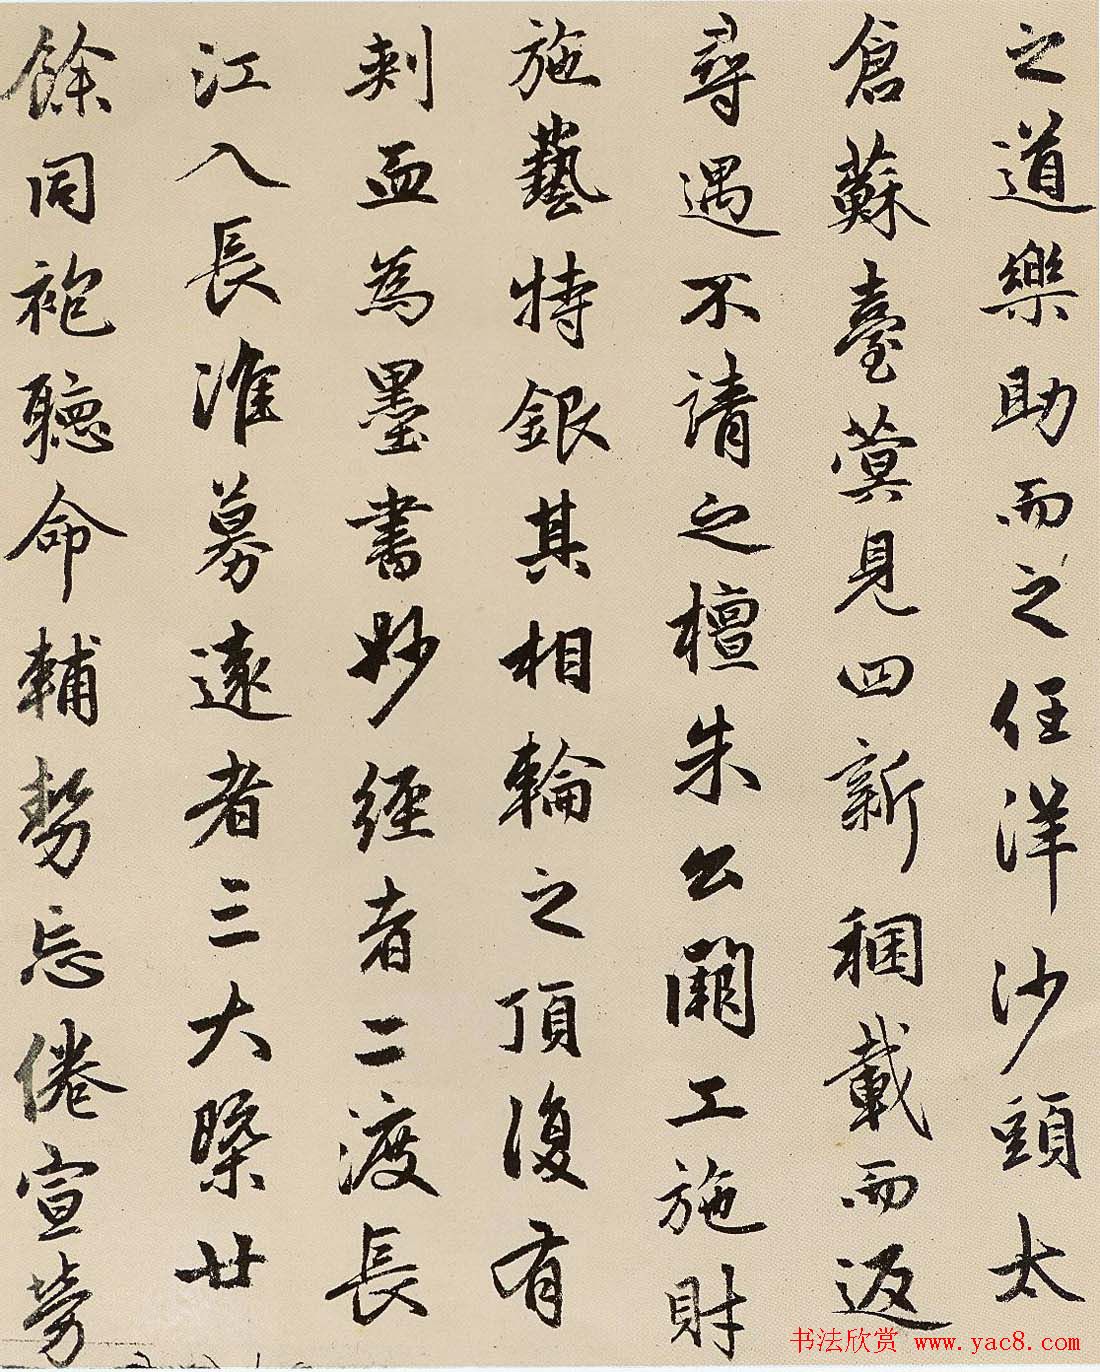 之道樂助而之任洋沙頭太
倉蘇臺蓂見四新稛載而返
尋遇不請之檀朱公開工施財
施藝特銀其相輪之頂復有
刺血為墨書妙經者二渡長
江入長淮募遠者三大槩廿
餘同袍聽命輔勢忘倦宣勞
书法欣赏 www.yac8.com